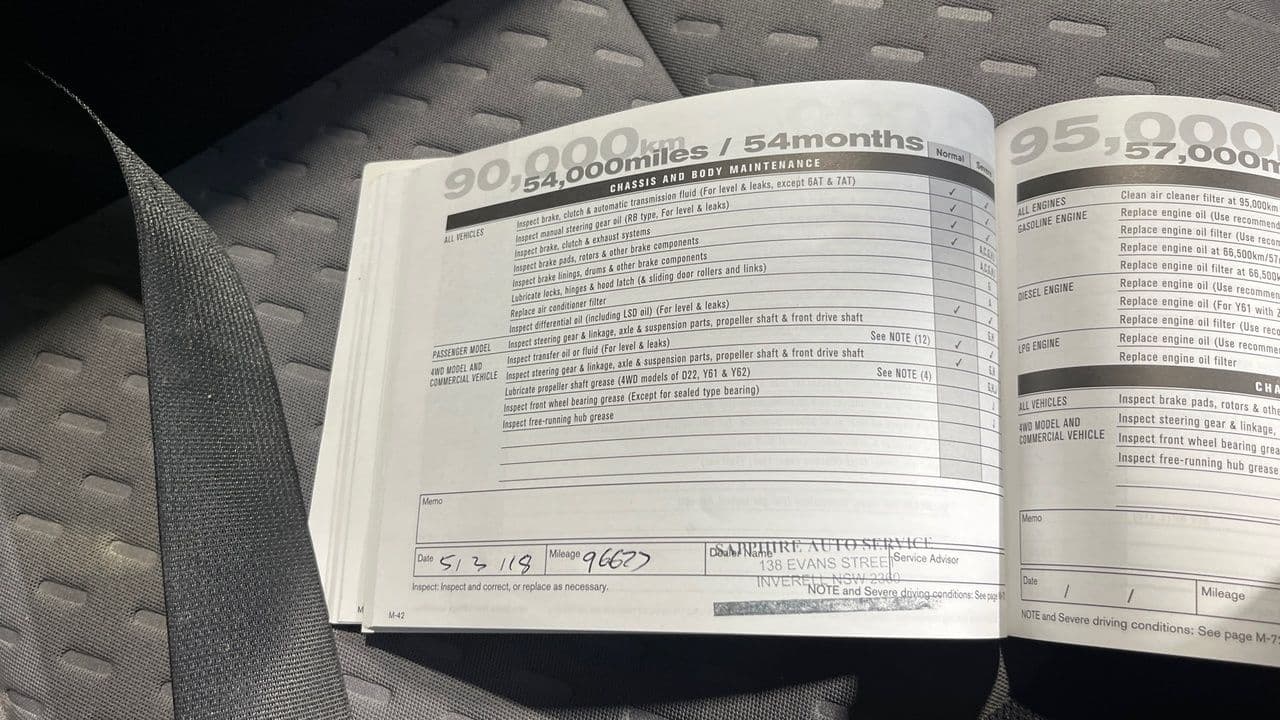 90,000km
54,000miles / 54months
CHASSIS AND BODY MAINTENANCE
Normal
ALL VEHICLES
Inspect brake, clutch & automatic transmission fluid (For level & leaks, except 6AT & 7AT)
Inspect manual steering gear oil (RB type, For level & leaks)
Inspect brake, clutch & exhaust systems
Inspect brake pads, rotors & other brake components
Inspect brake linings, drums & other brake components
Lubricate locks, hinges & hood latch (& sliding door rollers and links)
Replace air conditioner filter
Inspect differential oil (including LSD oil) (For level & leaks)
PASSENGER MODEL
Inspect steering gear & linkage, axle & suspension parts, propeller shaft & front drive shaft
4WD MODEL AND
COMMERCIAL VEHICLE
Inspect transfer oil or fluid (For level & leaks) See NOTE (12)
Inspect steering gear & linkage, axle & suspension parts, propeller shaft & front drive shaft
Lubricate propeller shaft grease (4WD models of D22, Y61 & Y62) See NOTE (4)
Inspect front wheel bearing grease (Except for sealed type bearing)
Inspect free-running hub grease
Memo
Date 5/3/18 Mileage Dealer Name Service Advisor
SAPPHIRE AUTO SERVICE
138 EVANS STREET
INVERELL NSW 2360
Inspect: Inspect and correct, or replace as necessary.
NOTE and Severe driving conditions: See page
M-42
95,000
57,000m
ALL ENGINES
Clean air cleaner filter at 95,000km
GASOLINE ENGINE
Replace engine oil (Use recommend
Replace engine oil filter (Use recom
Replace engine oil at 66,500km/57
Replace engine oil filter at 66,500k
DIESEL ENGINE
Replace engine oil (Use recommen
Replace engine oil (For Y61 with
Replace engine oil filter (Use reco
LPG ENGINE
Replace engine oil (Use recomme
Replace engine oil filter
CHA
ALL VEHICLES
Inspect brake pads, rotors & othe
4WD MODEL AND
COMMERCIAL VEHICLE
Inspect steering gear & linkage,
Inspect front wheel bearing grea
Inspect free-running hub grease
Memo
Date / / Mileage
NOTE and Severe driving conditions: See page M-7